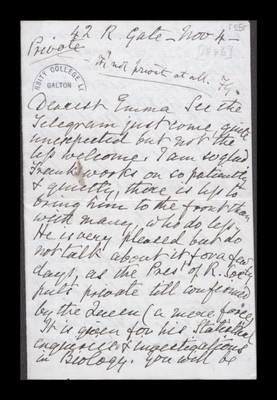 42 R. Gate - Nov 4 -
Private
not private at all. FG.
COLLEGE
GALTON
Dearest Emma See the
Telegram just come, quite
unexpected but not the
less welcome. I am so glad
Frank works on so patiently
& quietly, there is less to
bring him to the front than
with many who do less.
He is very pleased but do
not talk about it for a few
days, as the Pres.t of R. Socty
puts private till confirmed
by the Queen (a mere form)
It is given for his Statistical
enquiries & investigations
in Biology. You will be